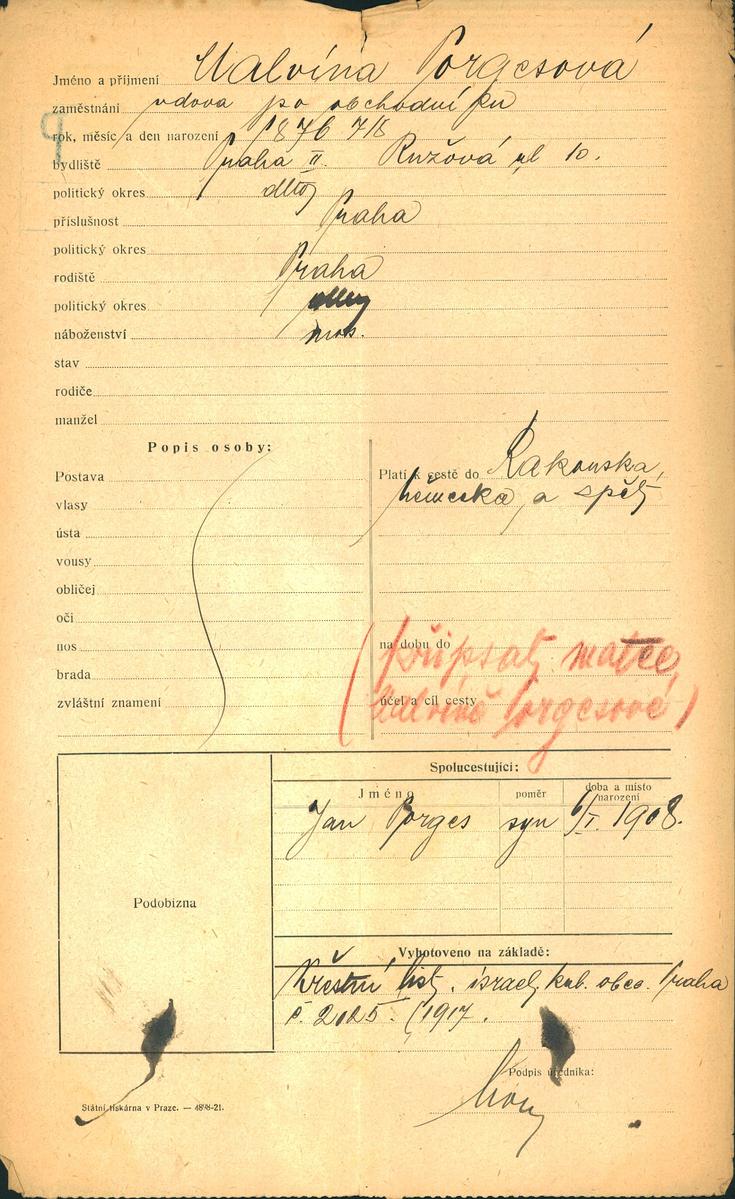 Jméno a příjmení Malvína Porgesová
zaměstnání vdova po obchodníku
rok, měsíc a den narození 1876 7/8
bydliště Praha II. Ružová ul 10.
politický okres dtto
příslušnost Praha
politický okres
rodiště Praha
politický okres
náboženství mos.
stav
rodiče
manžel
Popis osoby:
Postava
vlasy
ústa
vousy
obličej
oči
nos
brada
zvláštní znamení
Platí k cestě do Rakouska,
Německa, a zpět
na dobu do
účel a cíl cesty
(připsati matce,
Malvíně Porgesové)
Spolucestující:
Jméno poměr doba a místo narození
Jan Porges syn 6/I. 1908.
Podobizna
Vyhotoveno na základě:
Křestní list. israel. kul. obce. Praha
č. 2025. (1917.
Podpis úředníka:
Státní tiskárna v Praze. —